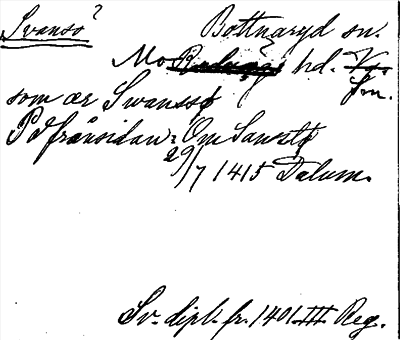 Svansö? Bottnaryd sn.
Mo hd. Vg.
Sm.
som är Swanssø
På frånsidan: Om Sanstø
29/7 1415 Dalum.
Sv. dipl. fr. 1401 III Reg.